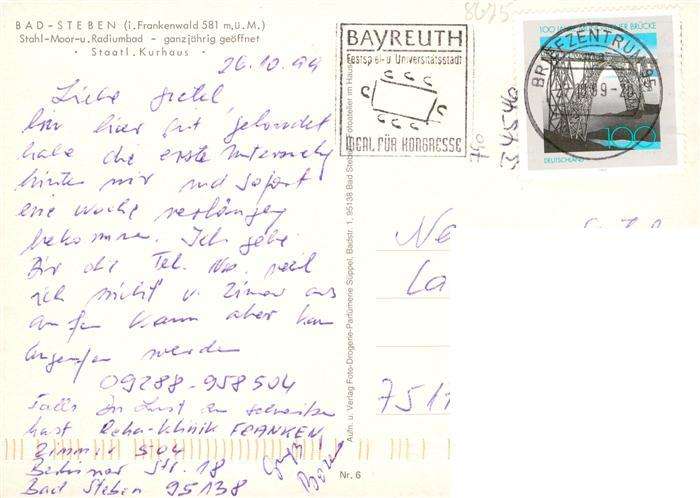 BAD-STEBEN (i. Frankenwald 581 m.ü.M.)
Stahl-Moor-u. Radiumbad - ganzjährig geöffnet
· Staatl. Kurhaus ·
26.10.99
Liebe Gretel,
bin hier gut gelandet
habe die erste
hinter mir und sofort
eine Woche verlängert
bekommen. Ich gebe
Dir die Tel. Nr., weil
ich nicht v. Zimmer aus
anrufen kann aber kann
angerufen werden
09288-958504
Falls Du Lust zu schreiben
hast Reha-Klinik FRANKEN
Zimmer 504
Berliner Str. 18
Bad Steben 95138
Gruß
Nr. 6
BAYREUTH
Festspiel- u. Universitätsstadt
IDEAL FÜR KONGRESSE
8675
34540
100
DEUTSCHLAND
BRIEFZENTRUM 95
Aufn. u. Verlag Foto-Drogerie-Parfümerie Süppel, Badstr. 1, 95138 Bad Steben
Ne
La
751